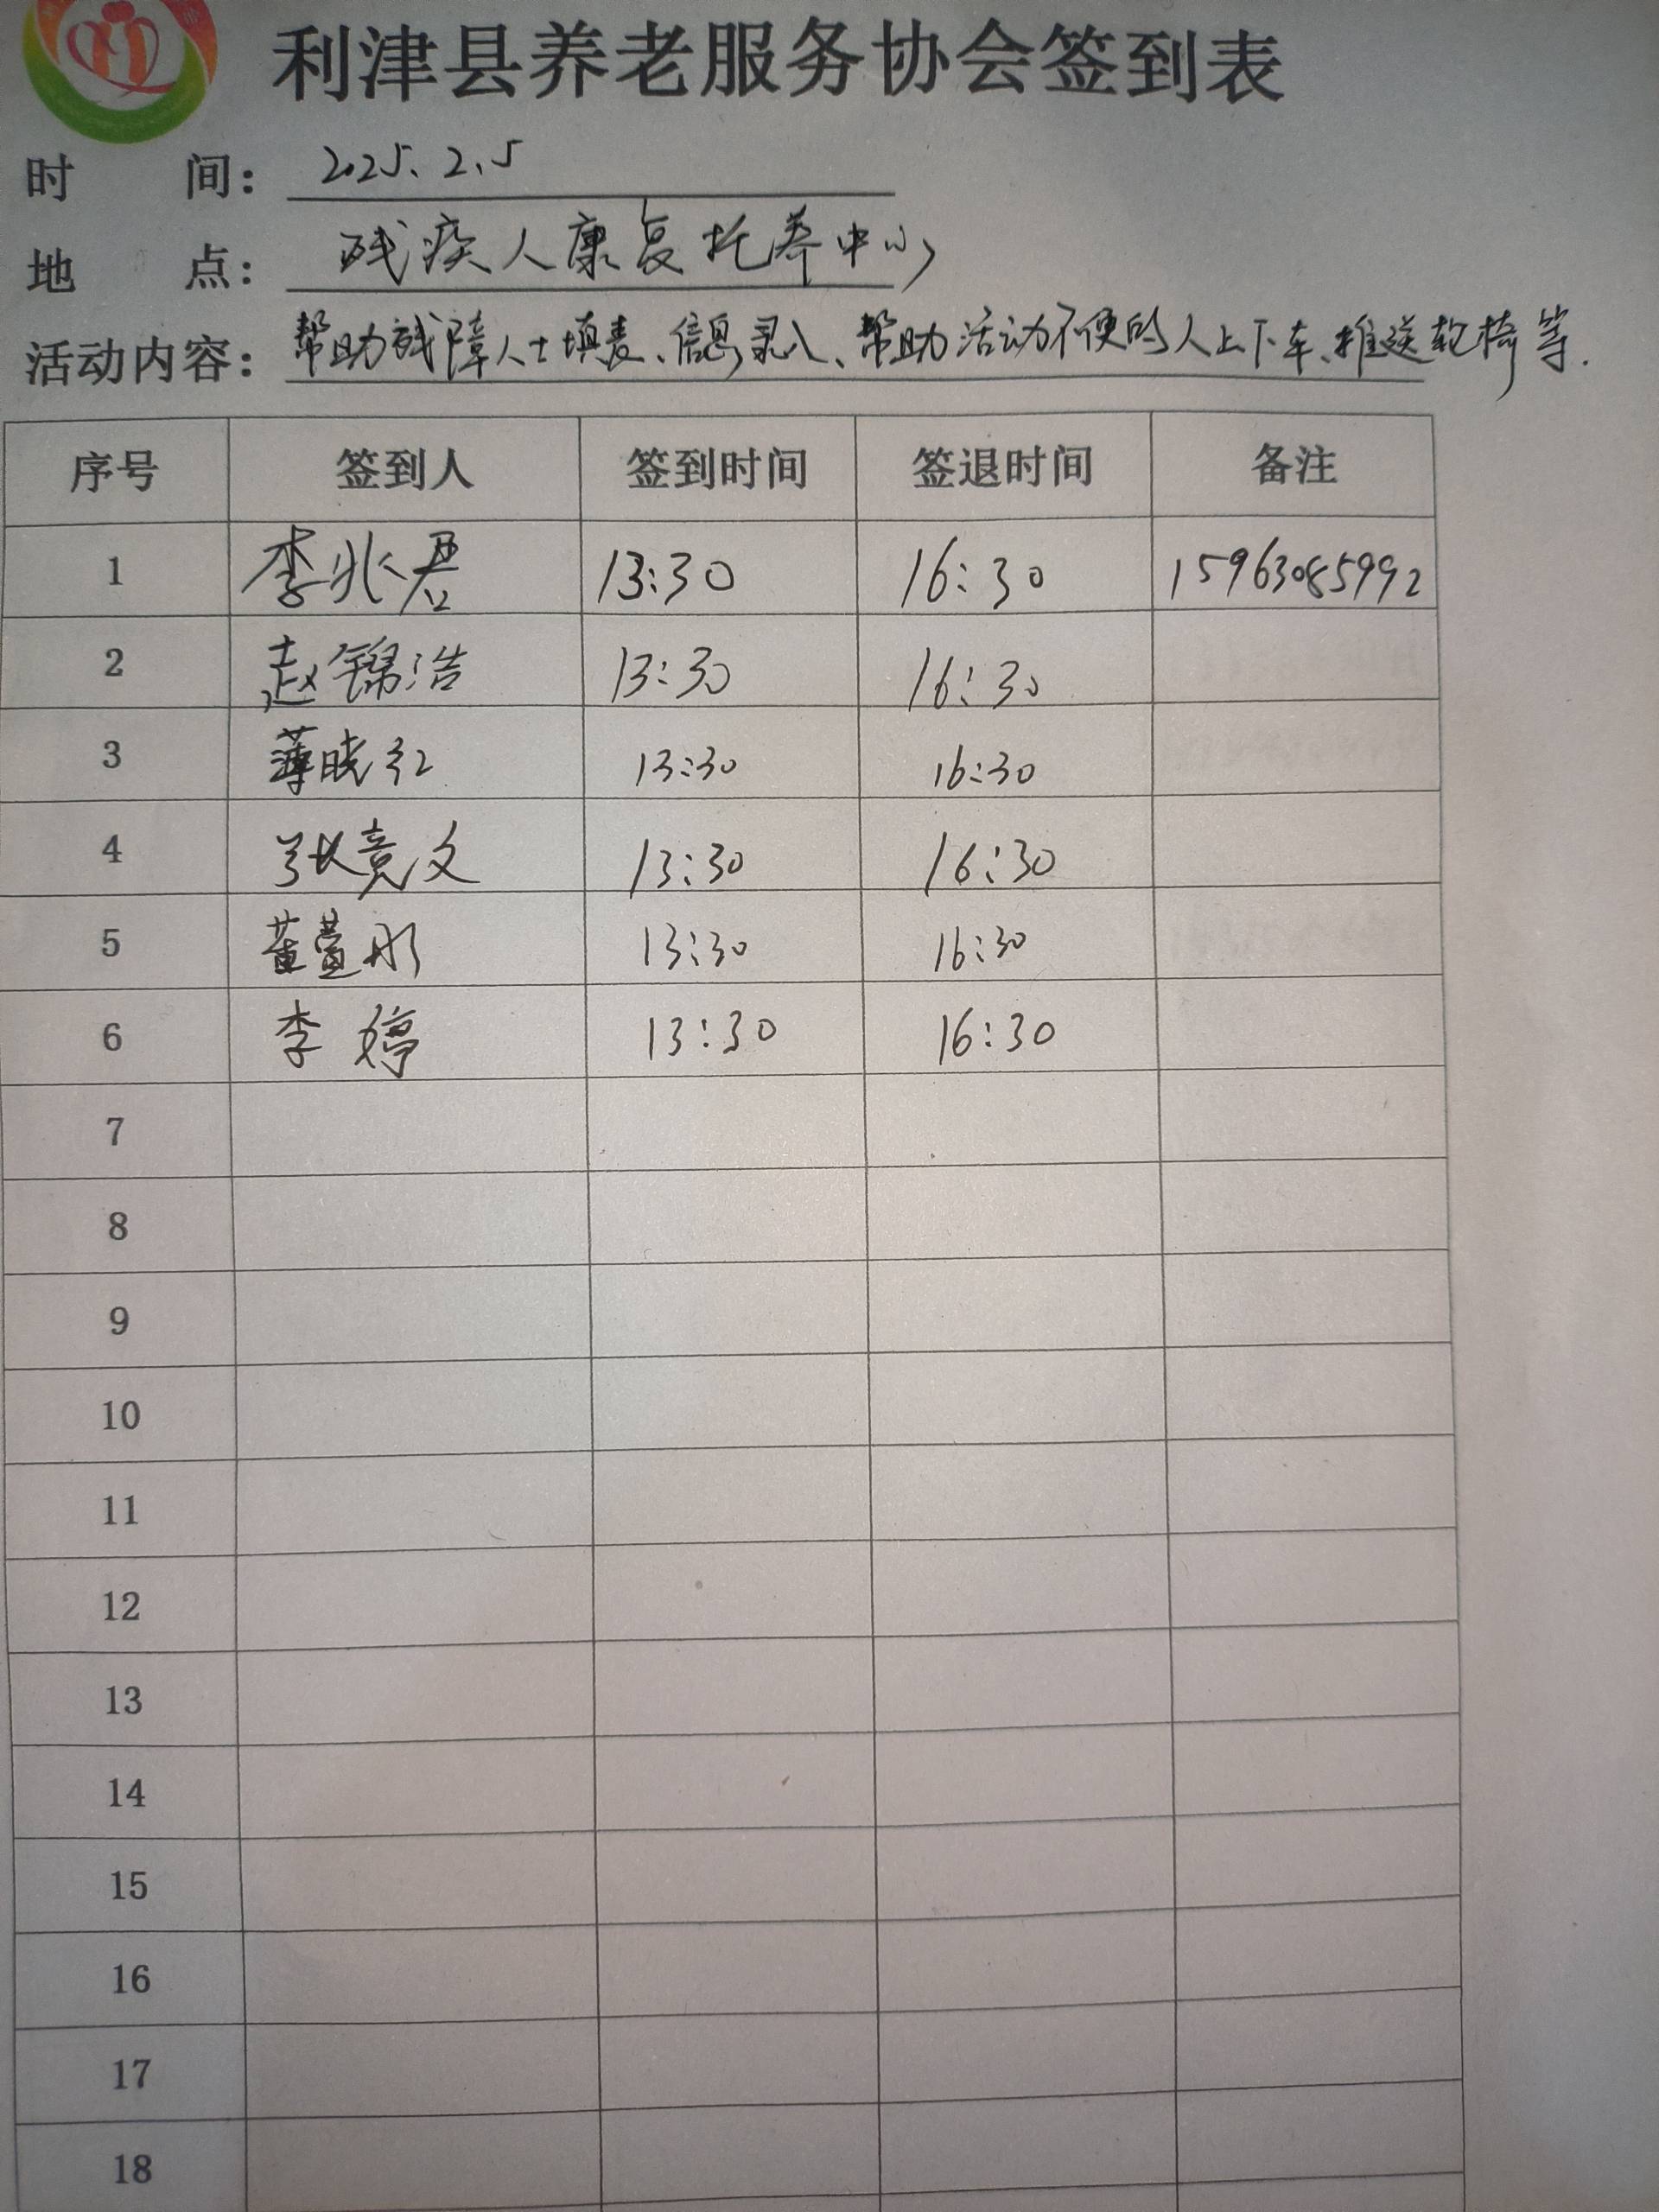 利津县养老服务协会签到表
时 间: 2025.2.5
地 点: 残疾人康复托养中心
活动内容: 帮助残障人士填表、信息录入、帮助活动不便的人上下车、推送轮椅等.
序号 签到人 签到时间 签退时间 备注
1 李兆君 13:30 16:30 15963085992
2 赵锦浩 13:30 16:30
3 薄晓红 13:30 16:30
4 张竟文 13:30 16:30
5 董萱彤 13:30 16:30
6 李婷 13:30 16:30
7
8
9
10
11
12
13
14
15
16
17
18